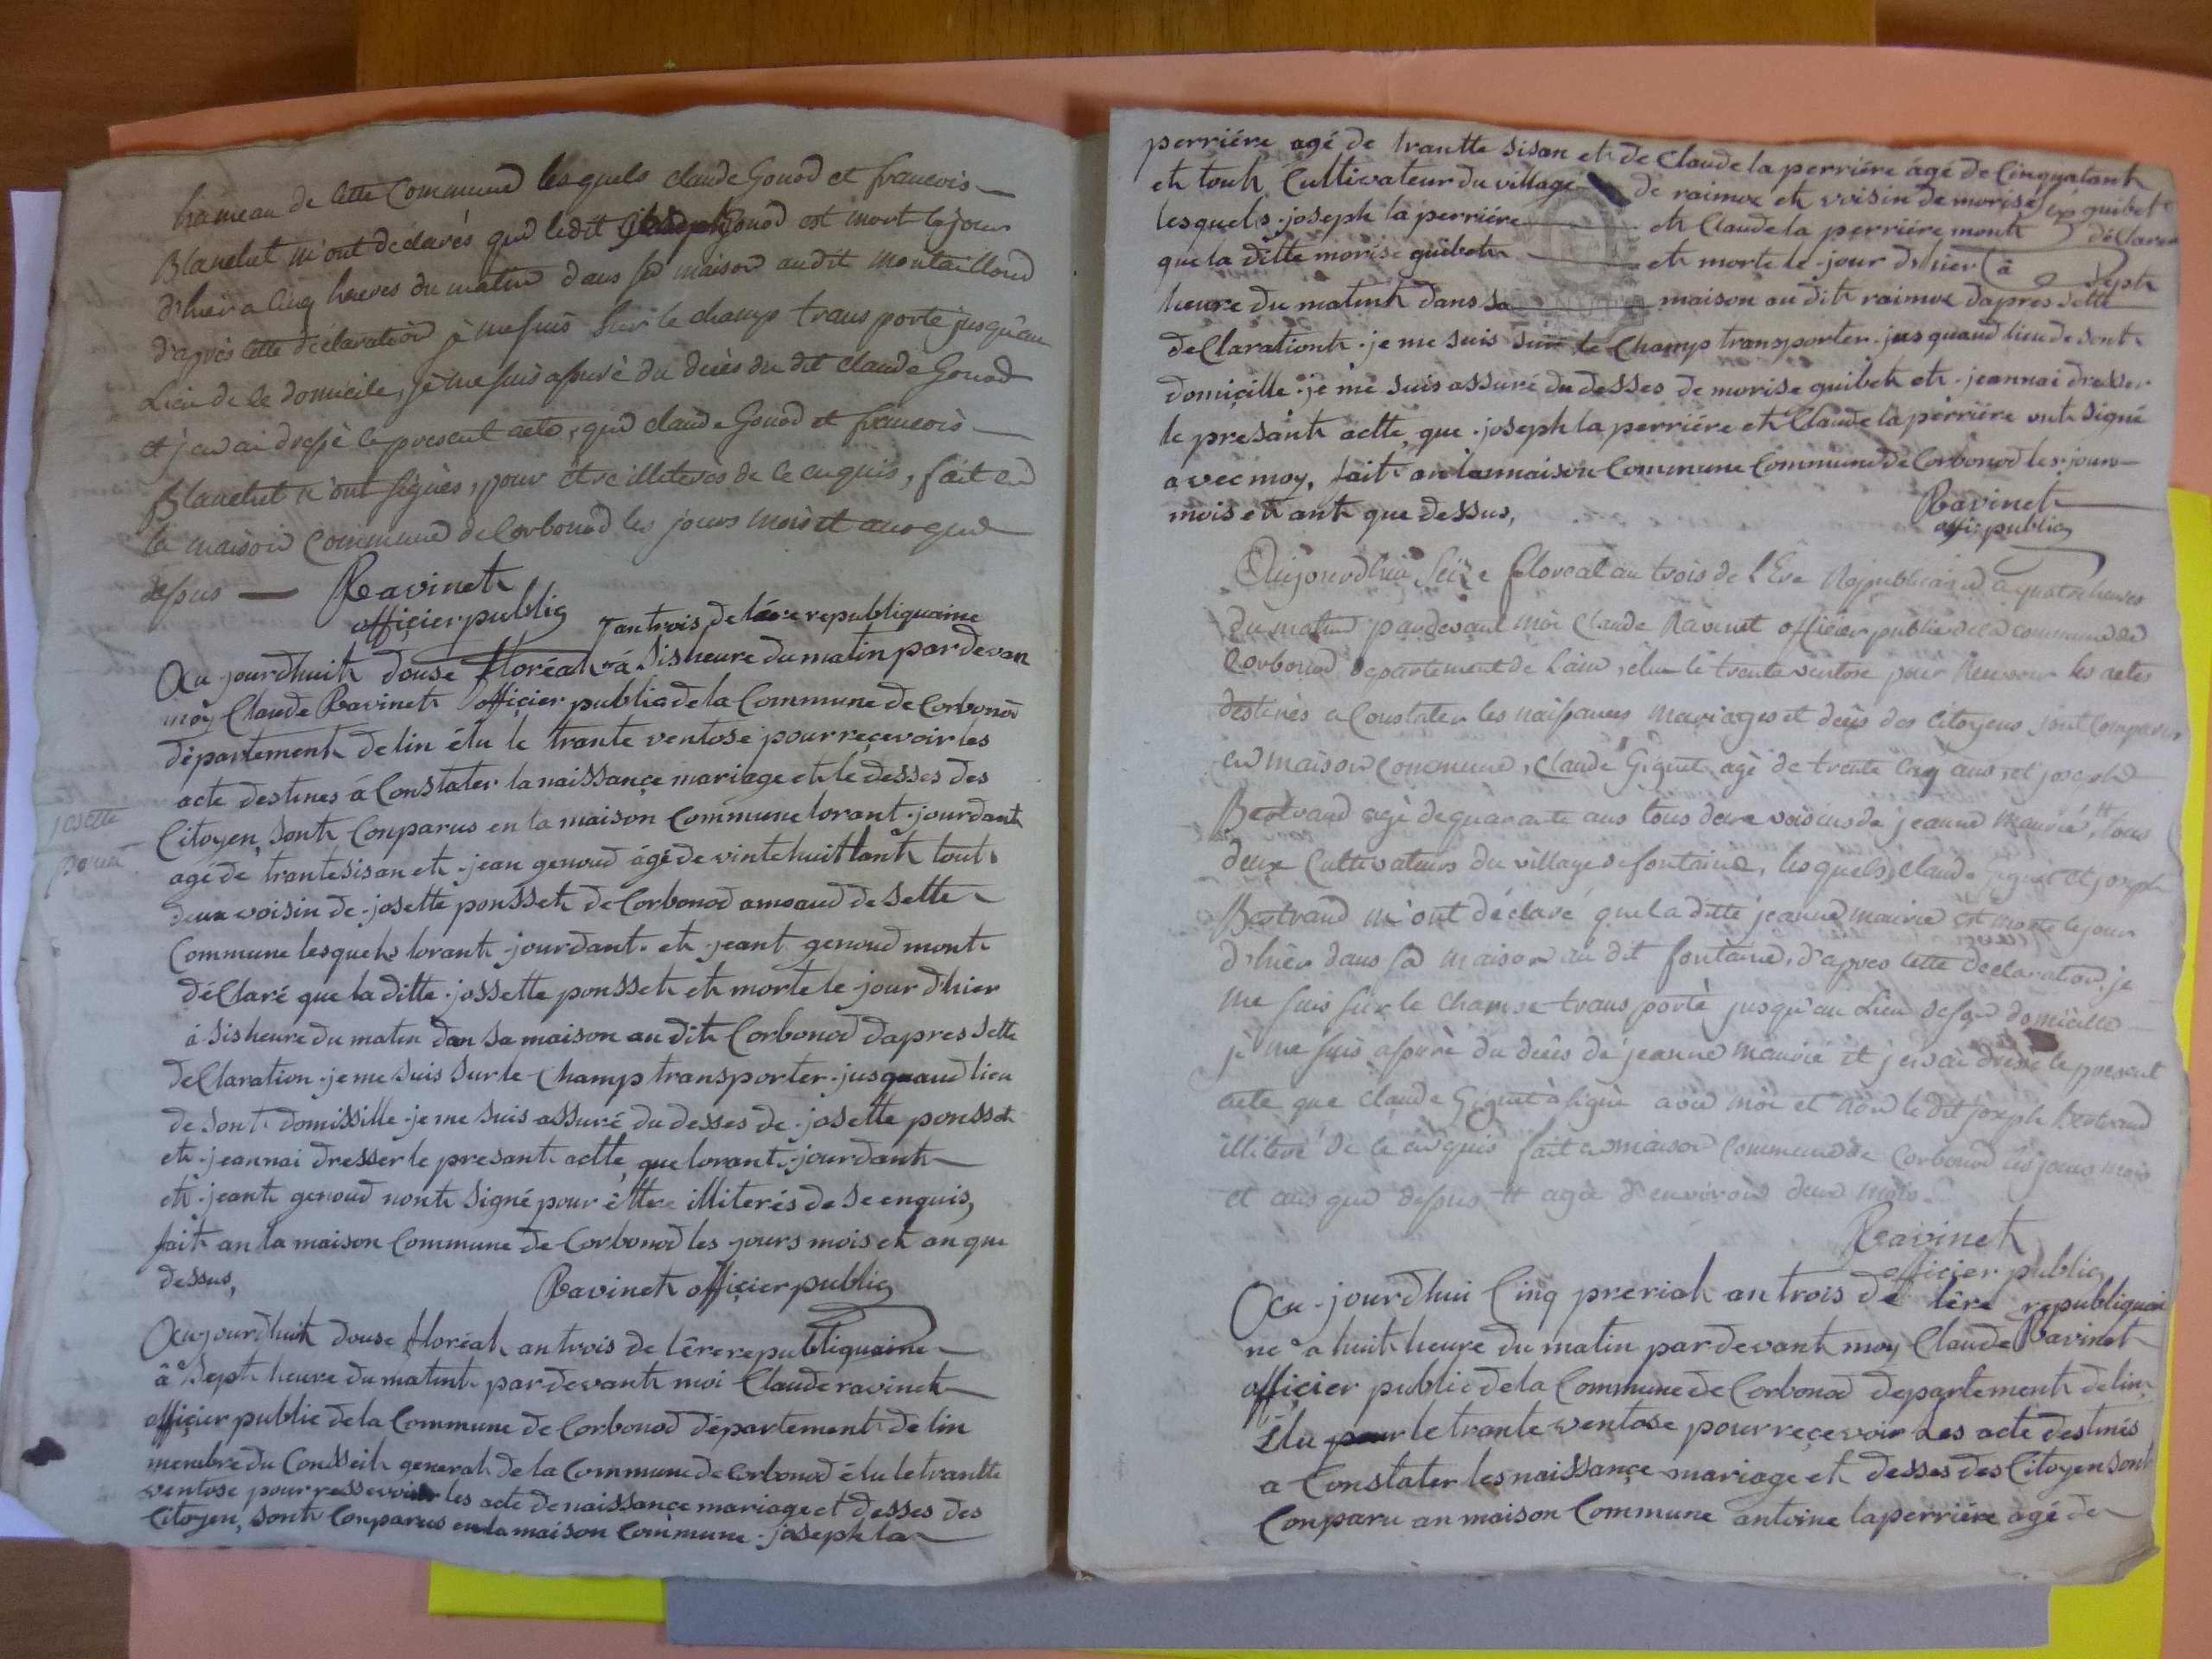 hameau de cette Commune lesquels claude Gonod et francois
Blanchet m'ont déclarés que ledit Gonod est mort le jour
d'hier a Cinq heures du matin dans sa maison audit montaillond
d'après cette déclaration je me suis sur le champ transporté jusqu'au
Lieu de ce domicile, je me suis assuré du décès du dit claude Gonod
et j'en ai dressé le present acte, que claude Gonod et francois
Blanchet n'ont signés, pour être illiteres de ce enquis, fait en
la maison Commune de Corbonod les jours mois et ans que
dessus Ravinet
officier public
an trois de lére republiquaine
Au-jourdhuit douse floréal á sis heure du matin pardevan
moy Claude Ravinet officier public de la Commune de Corbonod
département de lin élu le trante ventose pour reçevoir les
acte destines á Constater la naissançe mariage et le desses des
Citoyen, sont Conparus en la maison Commune lorant jourdant
agé de trante sisan et jean genoud ágé de vintehuittant tout
deux voisin de josette pousset de Corbonod amoaud de sette
Commune lesquels lorant jourdant et jeant genoud mont
déClaré que la ditte jossette pousset et morte le jour d'hier
á sis heure du maten dan sa maison au dit Corbonod dapres sette
deClaration je me suis sur le Champ transporter jusquaud lieu
de sont domissille je me suis assuré du desses de josette pousset
et jeannai dresser le presant actte que lorant jourdant
et jeant genoud nont signé pour èttre illiterés de se enquis,
fait an la maison Commune de Corbonod les jours mois et an que
dessus, Ravinet officier public
Au-jourdhuit douse floréal an trois de lére republiquaine
â Sept heure du matint pardevant moi Claude ravinet
officier public de la Commune de Corbonod département de lin
menbre du Consseil general de la Commune de Corbonod élu le trantte
ventose pour ressevoir les acte de naissançe mariage et desses des
Citoyen, sont Conparus en la maison Commune joseph la
josette
perriére agé de trantte sisan et de Claude la perriére ágé de Cinquatant
et tout Cultivateur du village de raimoz et voisin de morise guibet
lesquels joseph la perriére et Claude la perriére mont déClarer
que la ditte morise guibet et morte le jour dhier â Sept
heure du matint dans sa maison au dit raimoz dapres sette
deClarationt je me suis sur le Champ transporter jusquaud lieu de sont
domiçille je me suis assuré du desses de morise guibet et jeannai dresser
le presant actte que joseph la perriére et Claude la perriére ont signé
avec moy, fait an la maison Commune Commune de Corbonod les jours
mois et ant que dessus, Ravinet
offi public
Aujourdhui seize floreal an trois de l'Ere Republicaine a quatre heures
du matin pardevant moi Claude Ravinet officier public de la commune de
Corbonod departement de Lain, élu le trente ventose pour Recevoir les actes
destinés a Constater les naissances mariages et décès des Citoyens sont Comparus
en maison commune, claude Giguet agé de trente Cinq ans, et joseph
Bertrand agé de quarante ans tous deux voisins de jeanne maurié, tt tous
deux Cultivateurs du village de fontaine, lesquels claude giguet et joseph
Bertrand m'ont déclaré que la ditte jeanne maurié est morte le jour
d'hier dans sa maison au dit fontaine, d'apres cette declaration je
me suis sur le champ transporté jusqu'au Lieu de son domicille
je me suis assuré du décès de jeanne maurié et j'en ai dressé le present
acte que claude Giguet à signé avec moi et non le dit joseph bertrand
illiteré de ce enquis fait en maison Commune de Corbonod les jours mois
et ans que dessus tt agée d'environ deux mois.
Ravinet
officier public
Au-jourdhui Cinq prerial an trois de lére republiquai
ne a huit heure du matin pardevant moy Claude Ravinet
officier public de la Commune de Corbonod departement de lin
Élu pour le trante ventose pour reçevoir Les acte destinés
a Constater les naissançe mariage et desses des Citoyen sont
Conparu an maison Commune antoine laperriére agé de